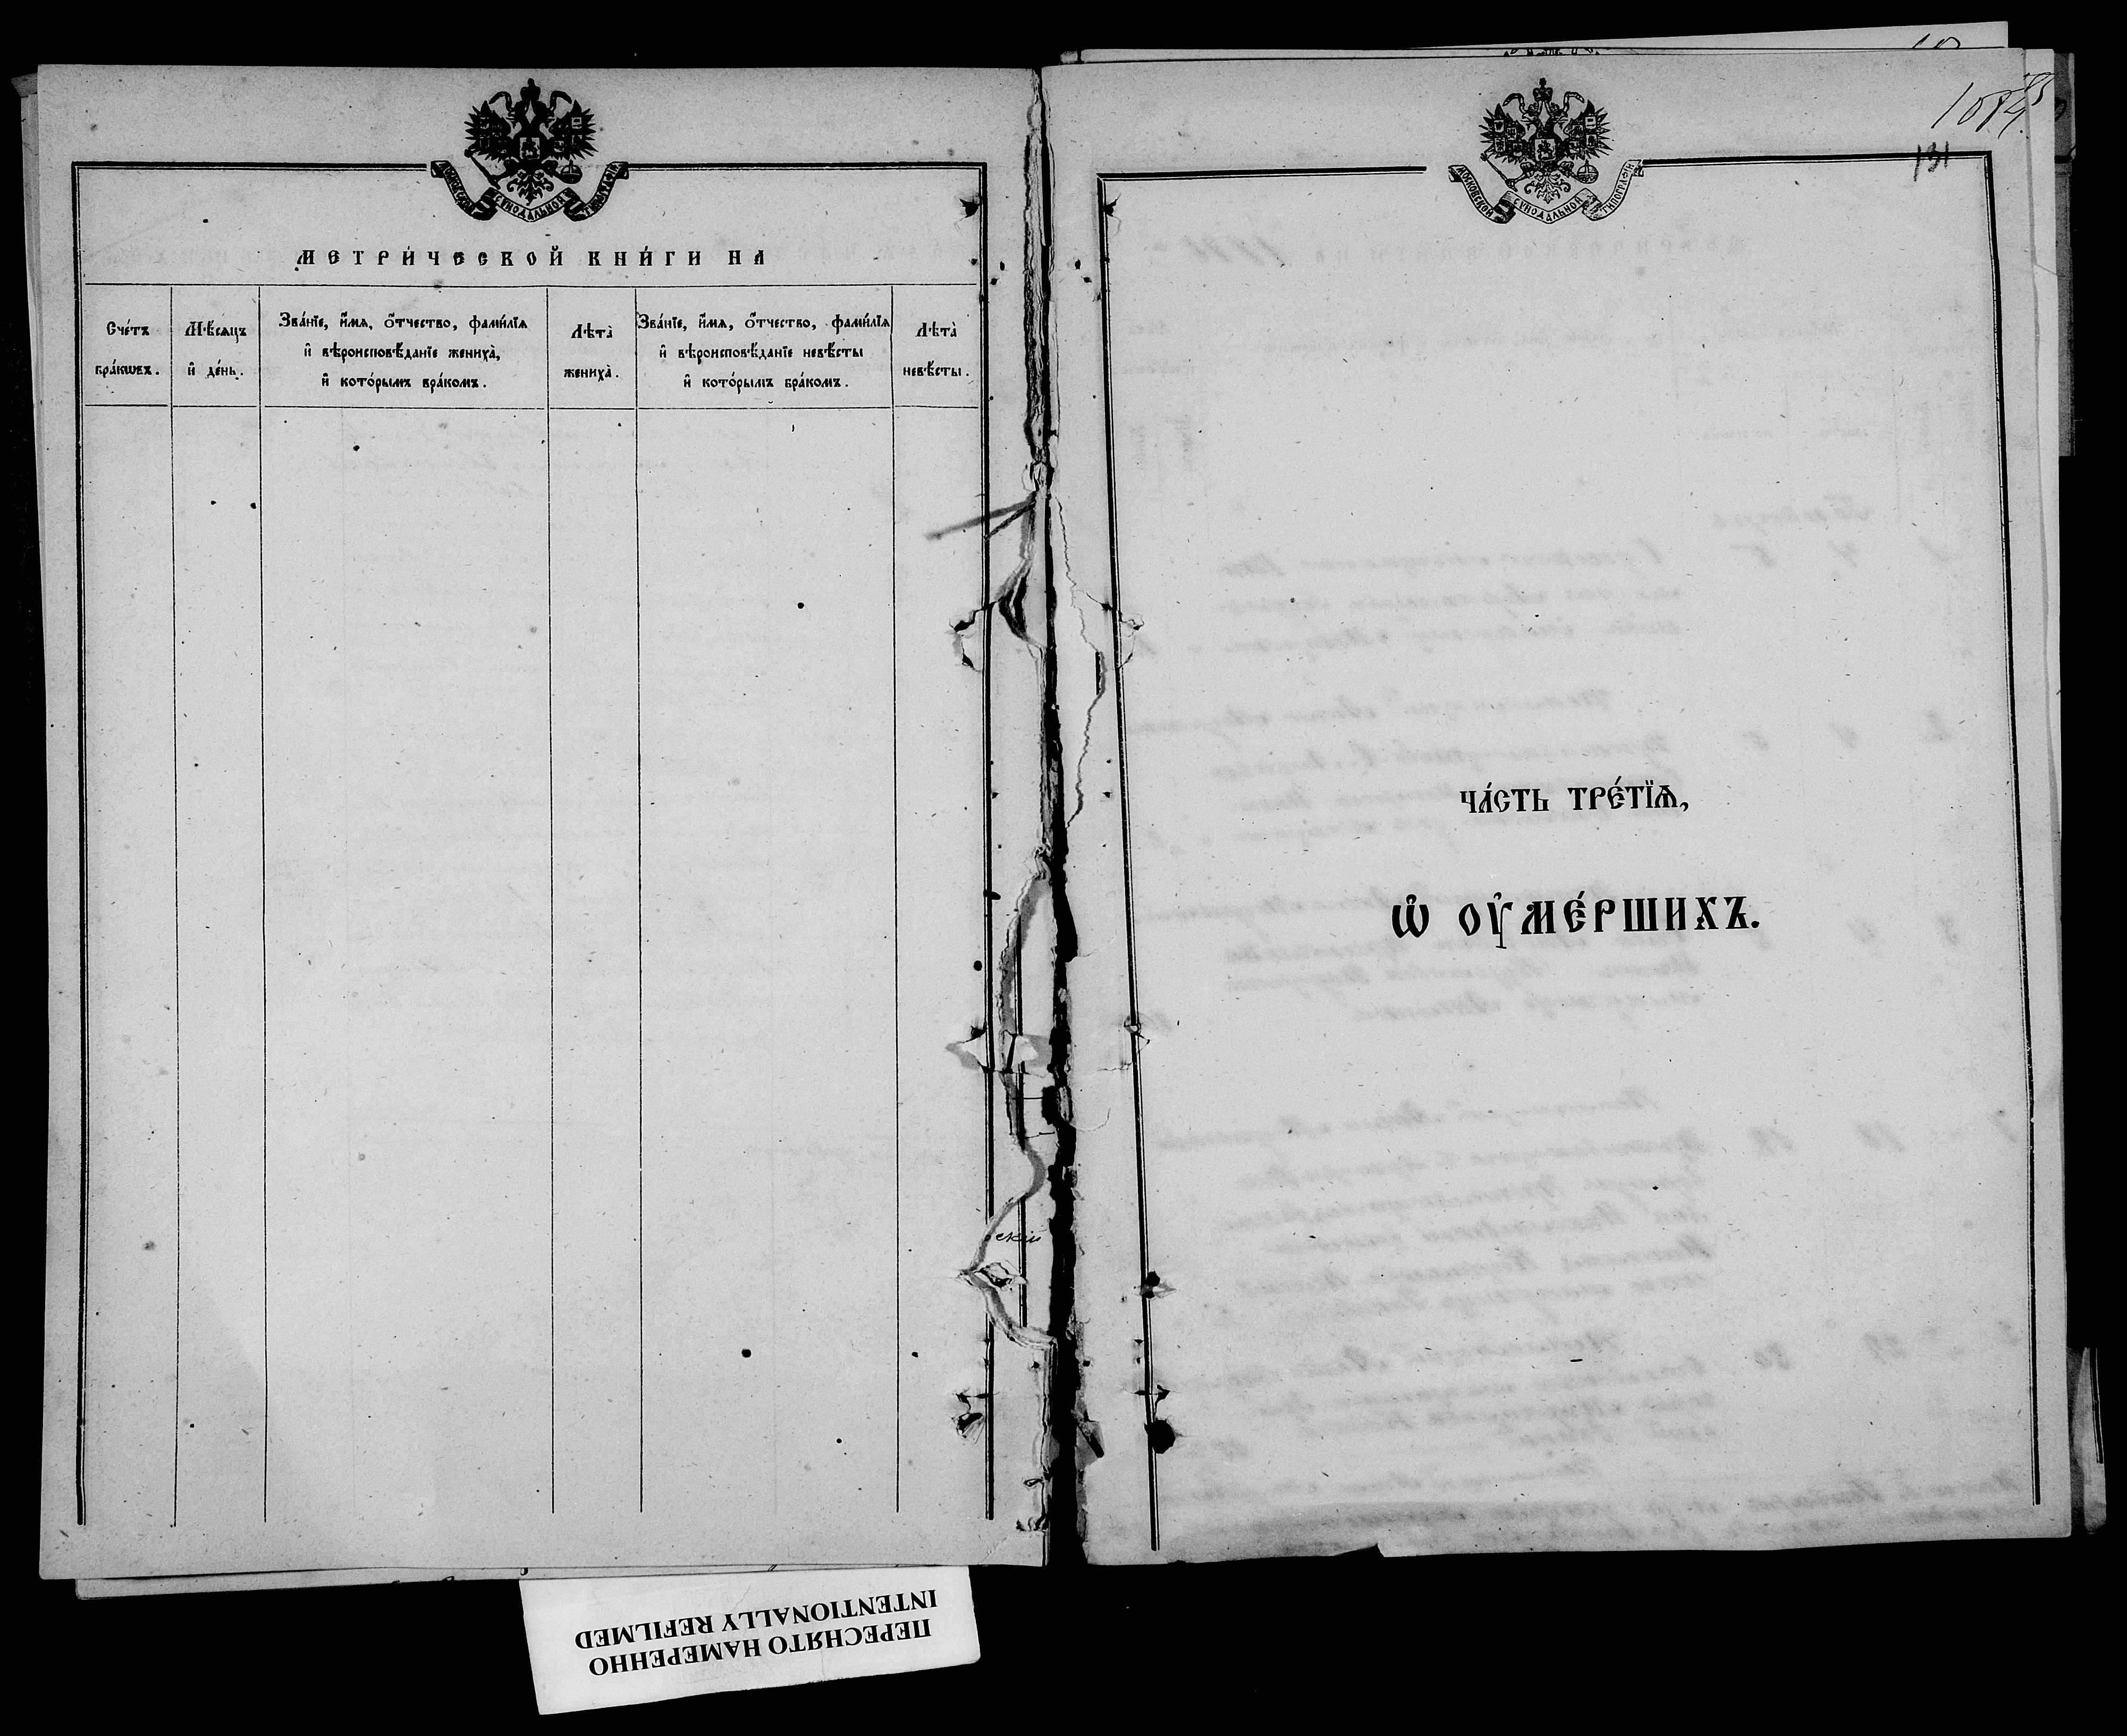 МОСКОВСКОЙ СѴНОДАЛЬНОЙ ТИПОГРАФІИ
МЕТРИ́ЧЕСКОЙ КНИ́ГИ НА
Сче́тъ
бра́кѡвъ.
Мѣ́сяцъ
и҆ де́нь.
Зва́нїе, и҆́мѧ, ѻ҆́тчество, фами́лїѧ
и҆ вѣроисповѣ́данїе жениха̀,
и҆ кото́рымъ бра́комъ.
Лѣта̀
жениха̀.
Зва́нїе, и҆́мѧ, ѻ҆́тчество, фами́лїѧ
и҆ вѣроисповѣ́данїе невѣ́сты
и҆ кото́рымъ бра́комъ.
Лѣта̀
невѣ́сты.
скій
131
МОСКОВСКОЙ СѴНОДАЛЬНОЙ ТИПОГРАФІИ
ЧА́СТЬ ТРЕ́ТЇѦ,
Ѡ҆ ОУ҆МЕ́РШИХЪ.
ПЕРЕСНЯТО НАМЕРЕННО
INTENTIONALLY REFILMED